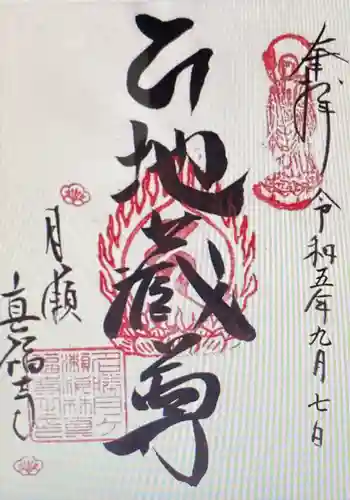 奉拝
令和五年九月七日
地蔵尊
月瀬
真福寺